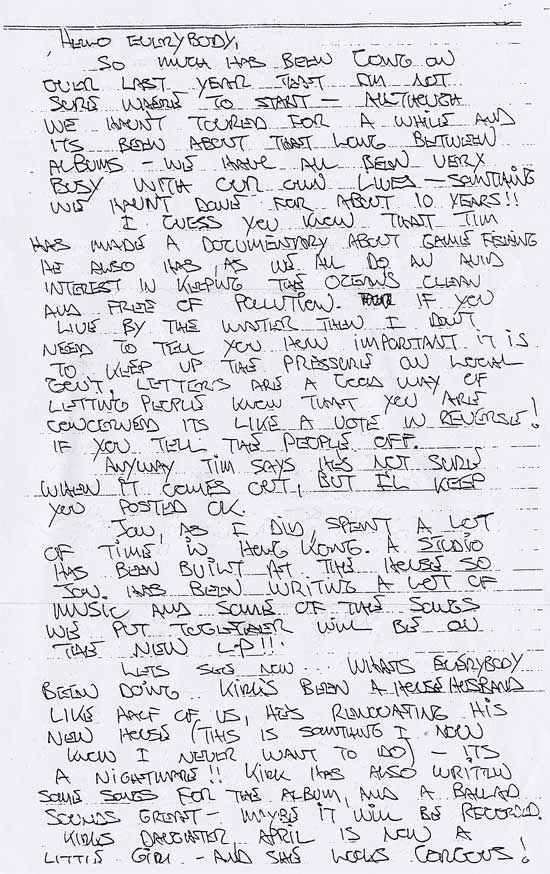 HELLO EVERYBODY,
SO MUCH HAS BEEN GOING ON
OVER LAST YEAR THAT I'M NOT
SURE WHERE TO START - ALLTHOUGH
WE HAVNT TOURED FOR A WHILE AND
ITS BEEN ABOUT THAT LONG BETWEEN
ALBUMS - WE HAVE ALL BEEN VERY
BUSY WITH OUR OWN LIVES - SOMTHING
WE HAVNT DONE FOR ABOUT 10 YEARS!!
I GUESS YOU KNOW THAT TIM
HAS MADE A DOCUMENTARY ABOUT GAME FISHING
HE ALSO HAS, AS WE ALL DO AN AVID
INTEREST IN KEEPING THE OCEANS CLEAN
AND FREE OF POLLUTION. IF YOU
LIVE BY THE WATER THEN I DON'T
NEED TO TELL YOU HOW IMPORTANT IT IS
TO KEEP UP THE PRESSURE ON LOCAL
GOV'T. LETTERS ARE A GOOD WAY OF
LETTING PEOPLE KNOW THAT YOU ARE
CONCERNED ITS LIKE A VOTE IN REVERSE!
IF YOU TELL THE PEOPLE OFF.
ANYWAY TIM SAYS HES NOT SURE
WHEN IT COMES OUT, BUT I'LL KEEP
YOU POSTED OK.
JON, AS I DID, SPENT A LOT
OF TIME IN HONG KONG. A STUDIO
HAS BEEN BUILT AT THE HOUSE SO
JON. HAS BEEN WRITING A LOT OF
MUSIC AND SOME OF THE SONGS
WE PUT TOGETHER WILL BE ON
THE NEW L.P!!
LETS SEE NOW.. WHATS EVERYBODY
BEEN DOING KIRKS BEEN A HOUSE HUSBAND
LIKE HALF OF US, HES RENOVATING HIS
NEW HOUSE (THIS IS SOMTHING I NOW
KNOW I NEVER WANT TO DO) - ITS
A NIGHTMARE!! KIRK HAS ALSO WRITTEN
SOME SONGS FOR THE ALBUM, AND A BALLAD
SOUNDS GREAT - MAYBE IT WILL BE RECORDED.
KIRKS DAUGHTER, APRIL IS NOW A
LITTLE GIRL - AND SHE LOOKS GORGOUS!